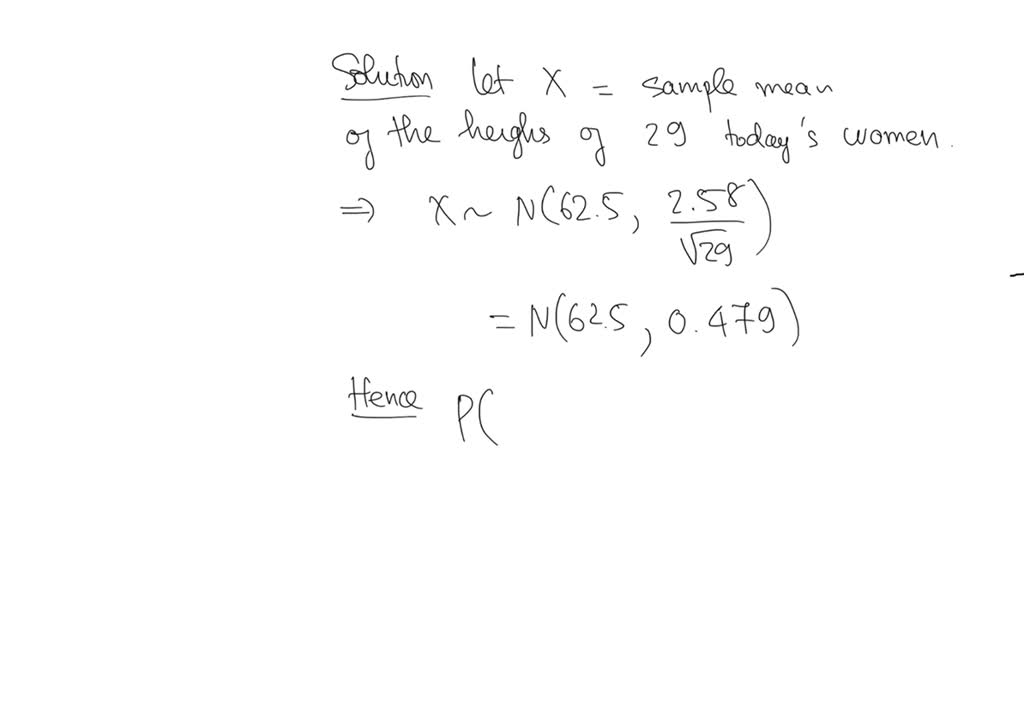 Solution let X = sample mean
of the heighs of 29 today's women.
⇒ X ~ N(62.5, 2.58/√29)
= N(62.5, 0.479)
Hence P(